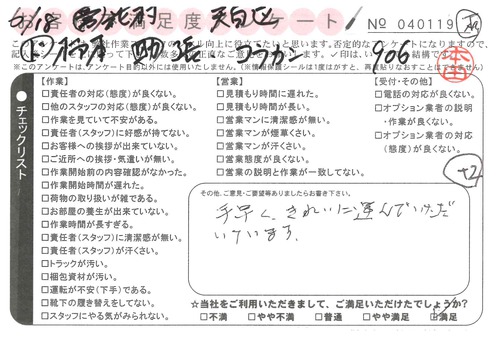 お客様満足度アンケート № 040119
結構です。
※このアンケートは、アンケート目的以外には使いたしません。
チェックリスト
【作業】
□責任者の対応(態度)が良くない。
□他のスタッフの対応(態度)が良くない。
□作業を見ていて不安がある。
□責任者(スタッフ)に好感が持てない。
□お客様への挨拶が出来ていない。
□ご近所への挨拶・気遣いが無い。
□作業開始前の内容確認がなかった。
□作業開始時間が遅れた。
□荷物の取り扱いが雑である。
□お部屋の養生が出来ていない。
□作業時間が長すぎる。
□責任者(スタッフ)に清潔感が無い。
□責任者(スタッフ)が汗くさい。
□トラックが汚い。
□梱包資材が汚い。
□運転が不安(下手)である。
□靴下の履き替えをしてない。
□スタッフにやる気がみられない。
【営業】
□見積もり時間に遅れた。
□見積もり時間が長い。
□営業マンに清潔感が無い。
□営業マンが煙草くさい。
□営業マンが汗くさい。
□営業態度が良くない。
□営業の説明と作業が一致してない。
【受付・その他】
□電話の対応が良くない。
□オプション業者の説明・作業が良くない。
□オプション業者の対応(態度)が良くない。
906
+2
その他、ご意見・ご要望等ありましたらお書き下さい。
手早く、きれいに運んでいただ
いています。
☆当社をご利用いただきまして、ご満足いただけたでしょうか?
□不満 □やや不満 □普通 □やや満足 ☑満足